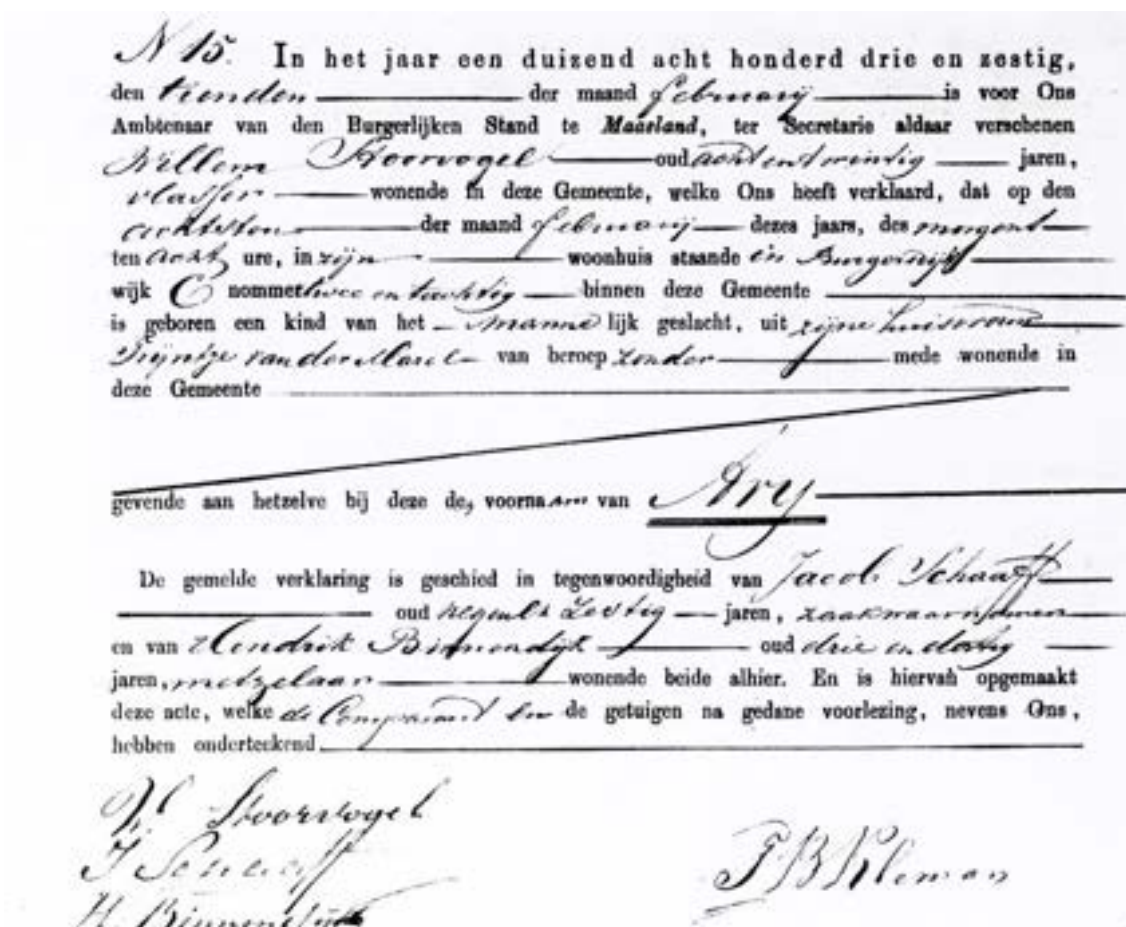 N 15. In het jaar een duizend acht honderd drie en zestig,
den tienden der maand februarij is voor Ons
Ambtenaar van den Burgerlijken Stand te Maasland, ter Secretarie aldaar verschenen
Willem Stoorvogel oud acht en twintig jaren,
vlasser wonende in deze Gemeente, welke Ons heeft verklaard, dat op den
achtsten der maand februarij dezes jaars, des morgens
ten acht ure, in zijn woonhuis staande in Burgerdijk
wijk C nommer twee en tachtig binnen deze Gemeente
is geboren een kind van het mannelijk geslacht, uit zijne huisvrouw
Trijntje van der Marel van beroep zonder mede wonende in
deze Gemeente
gevende aan hetzelve bij deze de, voornaam van Ary
De gemelde verklaring is geschied in tegenwoordigheid van Jacob Schaaff
oud zestig jaren, zaakwaarnemer
en van Hendrik Binnendijk oud drie en dertig
jaren, metzelaar wonende beide alhier. En is hiervan opgemaakt
deze acte, welke de Comparant en de getuigen na gedane voorlezing, nevens Ons,
hebben onderteekend
W. Stoorvogel
J Schaaff
H. Binnendijk